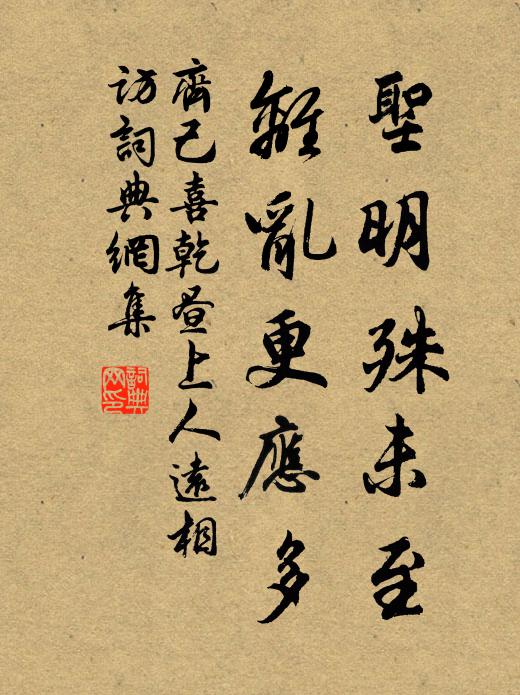 聖明殊未至
離亂更應多
齊己喜乾晝上人遠相
訪詞典網集
詞典網印